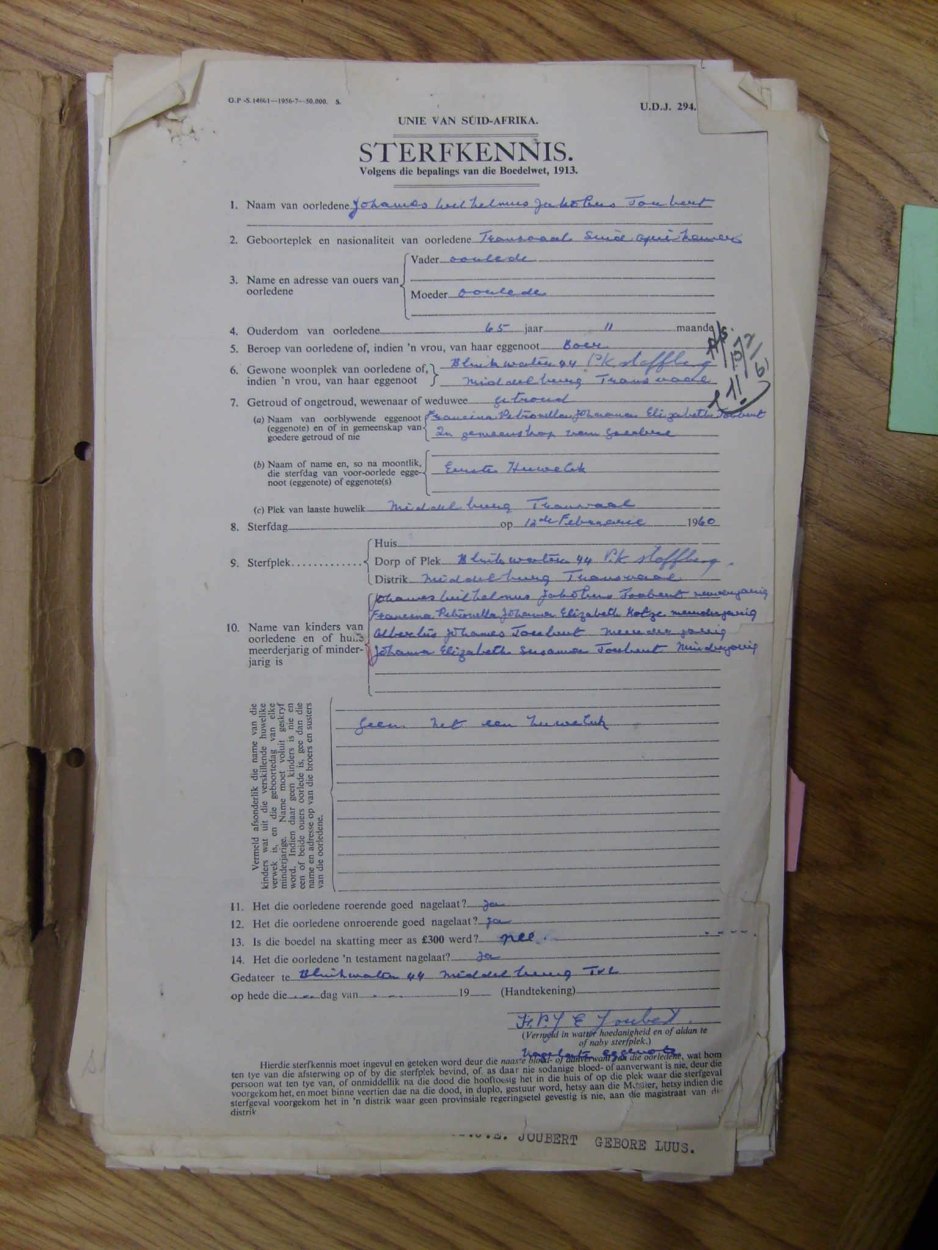 G.P.-S.14861—1956-7—50,000. S.
U.D.J. 294.
UNIE VAN SUID-AFRIKA.
STERFKENNIS.
Volgens die bepalings van die Boedelwet, 1913.
1. Naam van oorledene Johannes Wilhelmus Jakobus Joubert
2. Geboorteplek en nasionaliteit van oorledene Transvaal Suid
3. Name en adresse van ouers van oorledene
Vader oorlede
Moeder oorlede
4. Ouderdom van oorledene 65 jaar 11 maande
5. Beroep van oorledene of, indien 'n vrou, van haar eggenoot Boer
6. Gewone woonplek van oorledene of, indien 'n vrou, van haar eggenoot
Blinkwater 44 P.K. Stoffberg
Middelburg Transvaal
7. Getroud of ongetroud, wewenaar of weduwee getroud
(a) Naam van oorblywende eggenoot (eggenote) en of in gemeenskap van goedere getroud of nie
Francina Petronella Johanna Elizabeth Joubert
In gemeenskap van Goedere
(b) Naam of name en, so na moontlik, die sterfdag van voor-oorlede eggenoot (eggenote) of eggenote(s)
Eerste Huwelik
(c) Plek van laaste huwelik Middelburg Transvaal
8. Sterfdag op 12de Februarie 1960
9. Sterfplek
Huis
Dorp of Plek Blinkwater 44 P.K. Stoffberg
Distrik Middelburg Transvaal
10. Name van kinders van oorledene en of hulle meerderjarig of minderjarig is
Johannes Wilhelmus Jakobus Joubert
Francina Petronella Johanna Elizabeth Kotze
Albertus Johannes Joubert
Johanna Elizabeth Susanna Joubert Minderjarig
Vermeld afsonderlik die name van die
kinders wat uit die verskillende huwelike
verwek is, en die geboortedag van elke
minderjarige. Name moet voluit geskryf
word. Indien daar geen kinders is nie en
een of beide ouers oorlede is, gee dan die
name en adresse op van die broers en susters
van die oorledene.
Geen net een huwelik
11. Het die oorledene roerende goed nagelaat? Ja
12. Het die oorledene onroerende goed nagelaat? Ja
13. Is die boedel na skatting meer as £300 werd? nee
14. Het die oorledene 'n testament nagelaat? Ja
Gedateer te Blinkwater 44 Middelburg Tvl
op hede die dag van 19 (Handtekening)
F.P.J E Joubert
(Vermeld in watter hoedanigheid en of aldan te
of naby sterfplek.)
Nagelate eggenote
Hierdie sterfkennis moet ingevul en geteken word deur die naaste bloed- of aanverwant van die oorledene, wat hom
ten tye van die afsterwing op of by die sterfplek bevind, of, as daar nie sodanige bloed- of aanverwant is nie, deur die
persoon wat ten tye van, of onmiddellik na die dood die hooftoesig het in die huis of op die plek waar die sterfgeval
voorgekom het, en moet binne veertien dae na die dood, in duplo, gestuur word, hetsy aan die Meester, hetsy indien die
sterfgeval voorgekom het in 'n distrik waar geen provinsiale regeringsetel gevestig is nie, aan die magistraat van die
distrik
JOUBERT GEBORE LUUS.